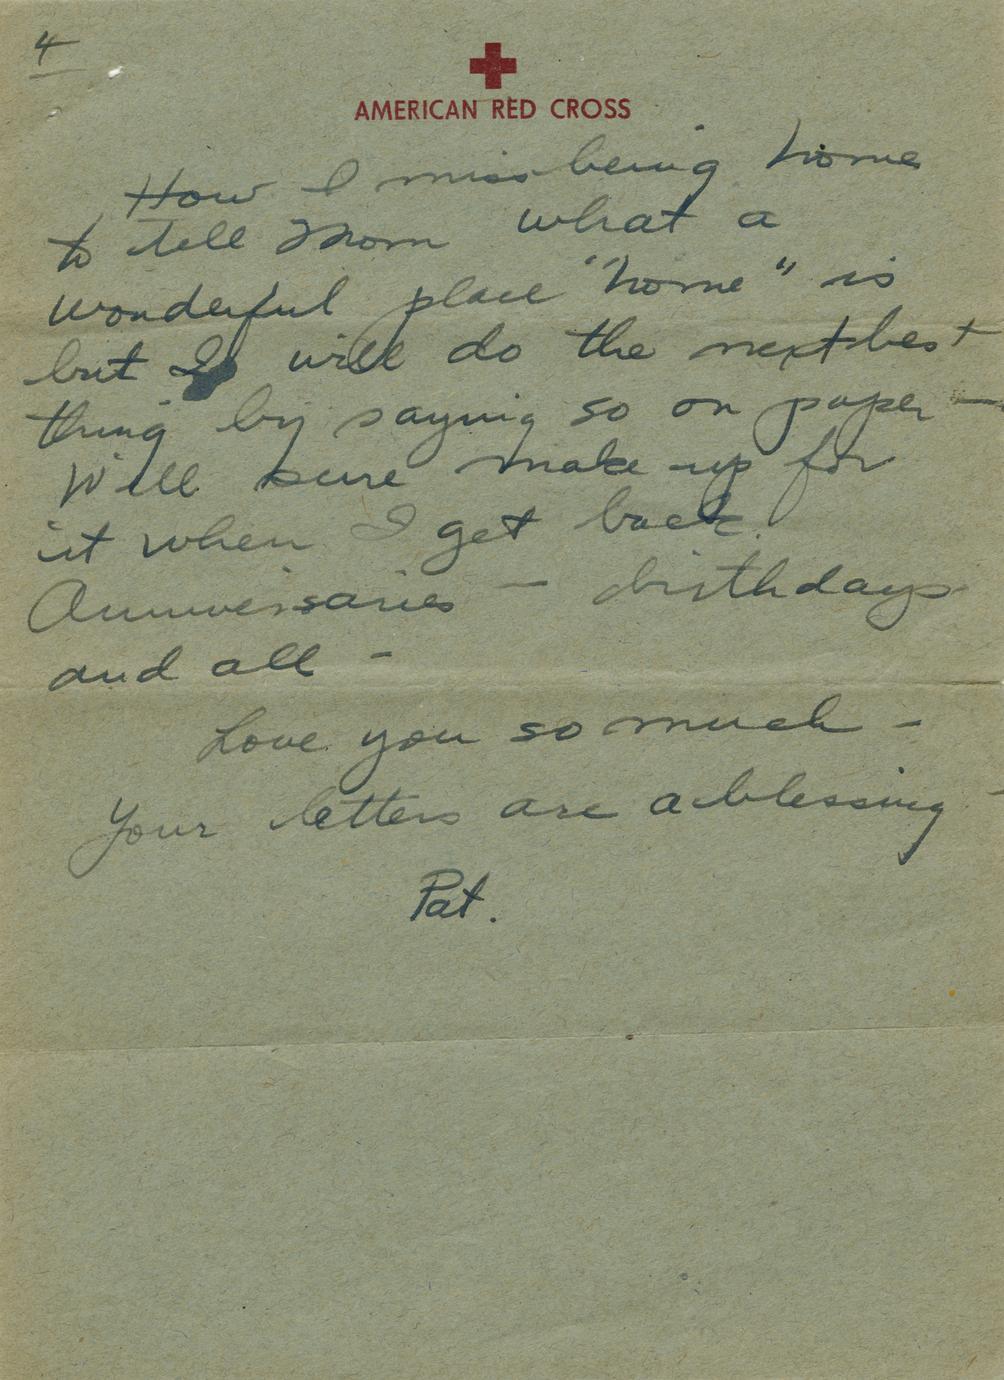 4
AMERICAN RED CROSS
How I miss being home
to tell Mom what a
wonderful place "home" is
but I will do the next best
thing by saying so on paper —
Will sure make up for
it when I get back.
Anniversaries — birthdays
and all —
Love you so much —
Your letters are a blessing —
Pat.